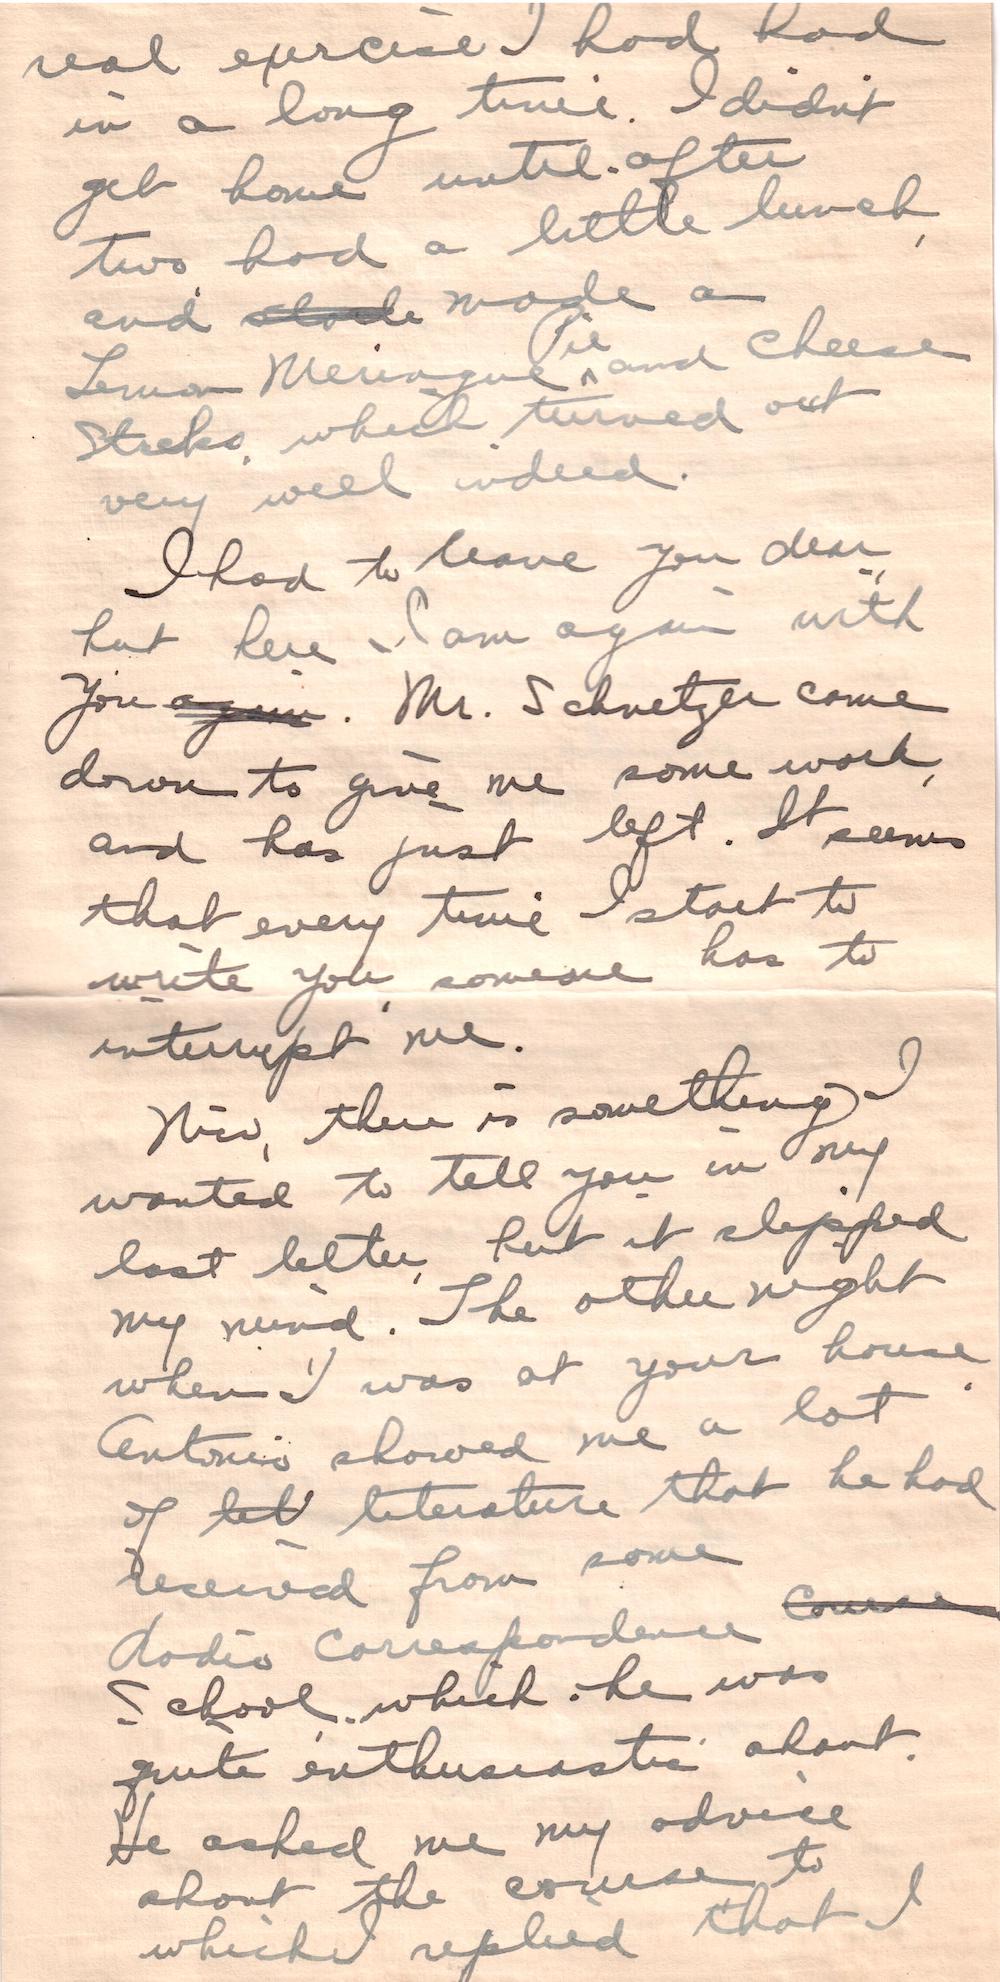 real exercise I had had
in a long time. I didn't
get home until after
two, had a little lunch,
and made a
Lemon Meringue Pie and Cheese
Streks, which turned out
very well indeed.
I had to leave you dear,
but here I am again with
you again. Mr. Schnetzer came
down to give me some work,
and has just left. It seems
that every time I start to
write you, someone has to
interrupt me.
Nico, there is something I
wanted to tell you in my
last letter, but it slipped
my mind. The other night
when I was at your house,
Antonio showed me a lot
of lit literature that he had
received from some
Radio Correspondence Course
School, which he was
quite enthusiastic about.
He asked me my advice
about the course to
which I replied that I